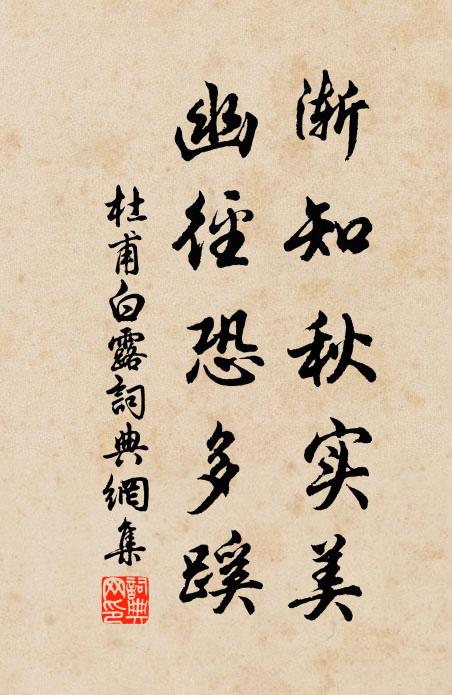 渐知秋实美
幽径恐多蹊
杜甫白露詞典網集
詞典
网印